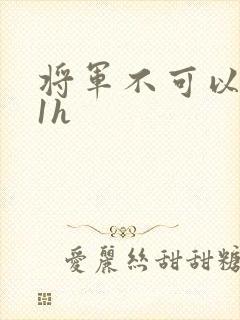 將軍不可以
1h
愛麗絲甜甜糖